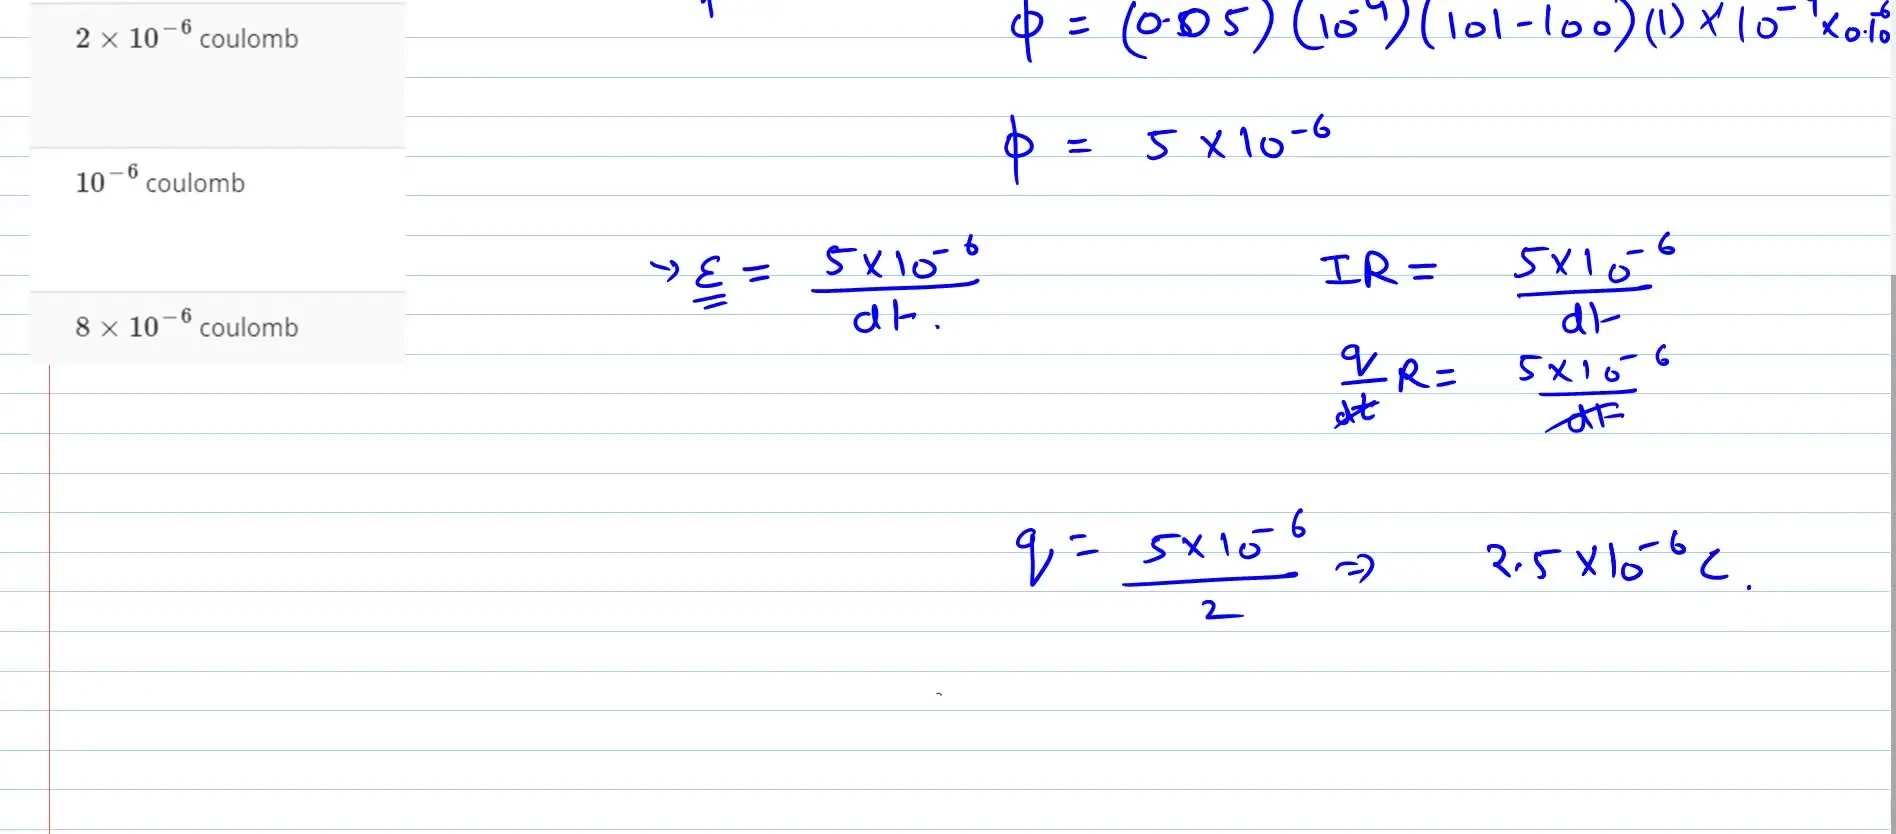 2 × 10⁻⁶ coulomb
10⁻⁶ coulomb
8 × 10⁻⁶ coulomb
ϕ = (0.05)(10⁻⁴)(101-100)(1) × 10
ϕ = 5 × 10⁻⁶
→ ε = 5×10⁻⁶ / dt.
IR = 5×10⁻⁶ / dt
q/dt R = 5×10⁻⁶ / dt
q = 5×10⁻⁶ / 2 ⇒ 2.5 × 10⁻⁶ C.